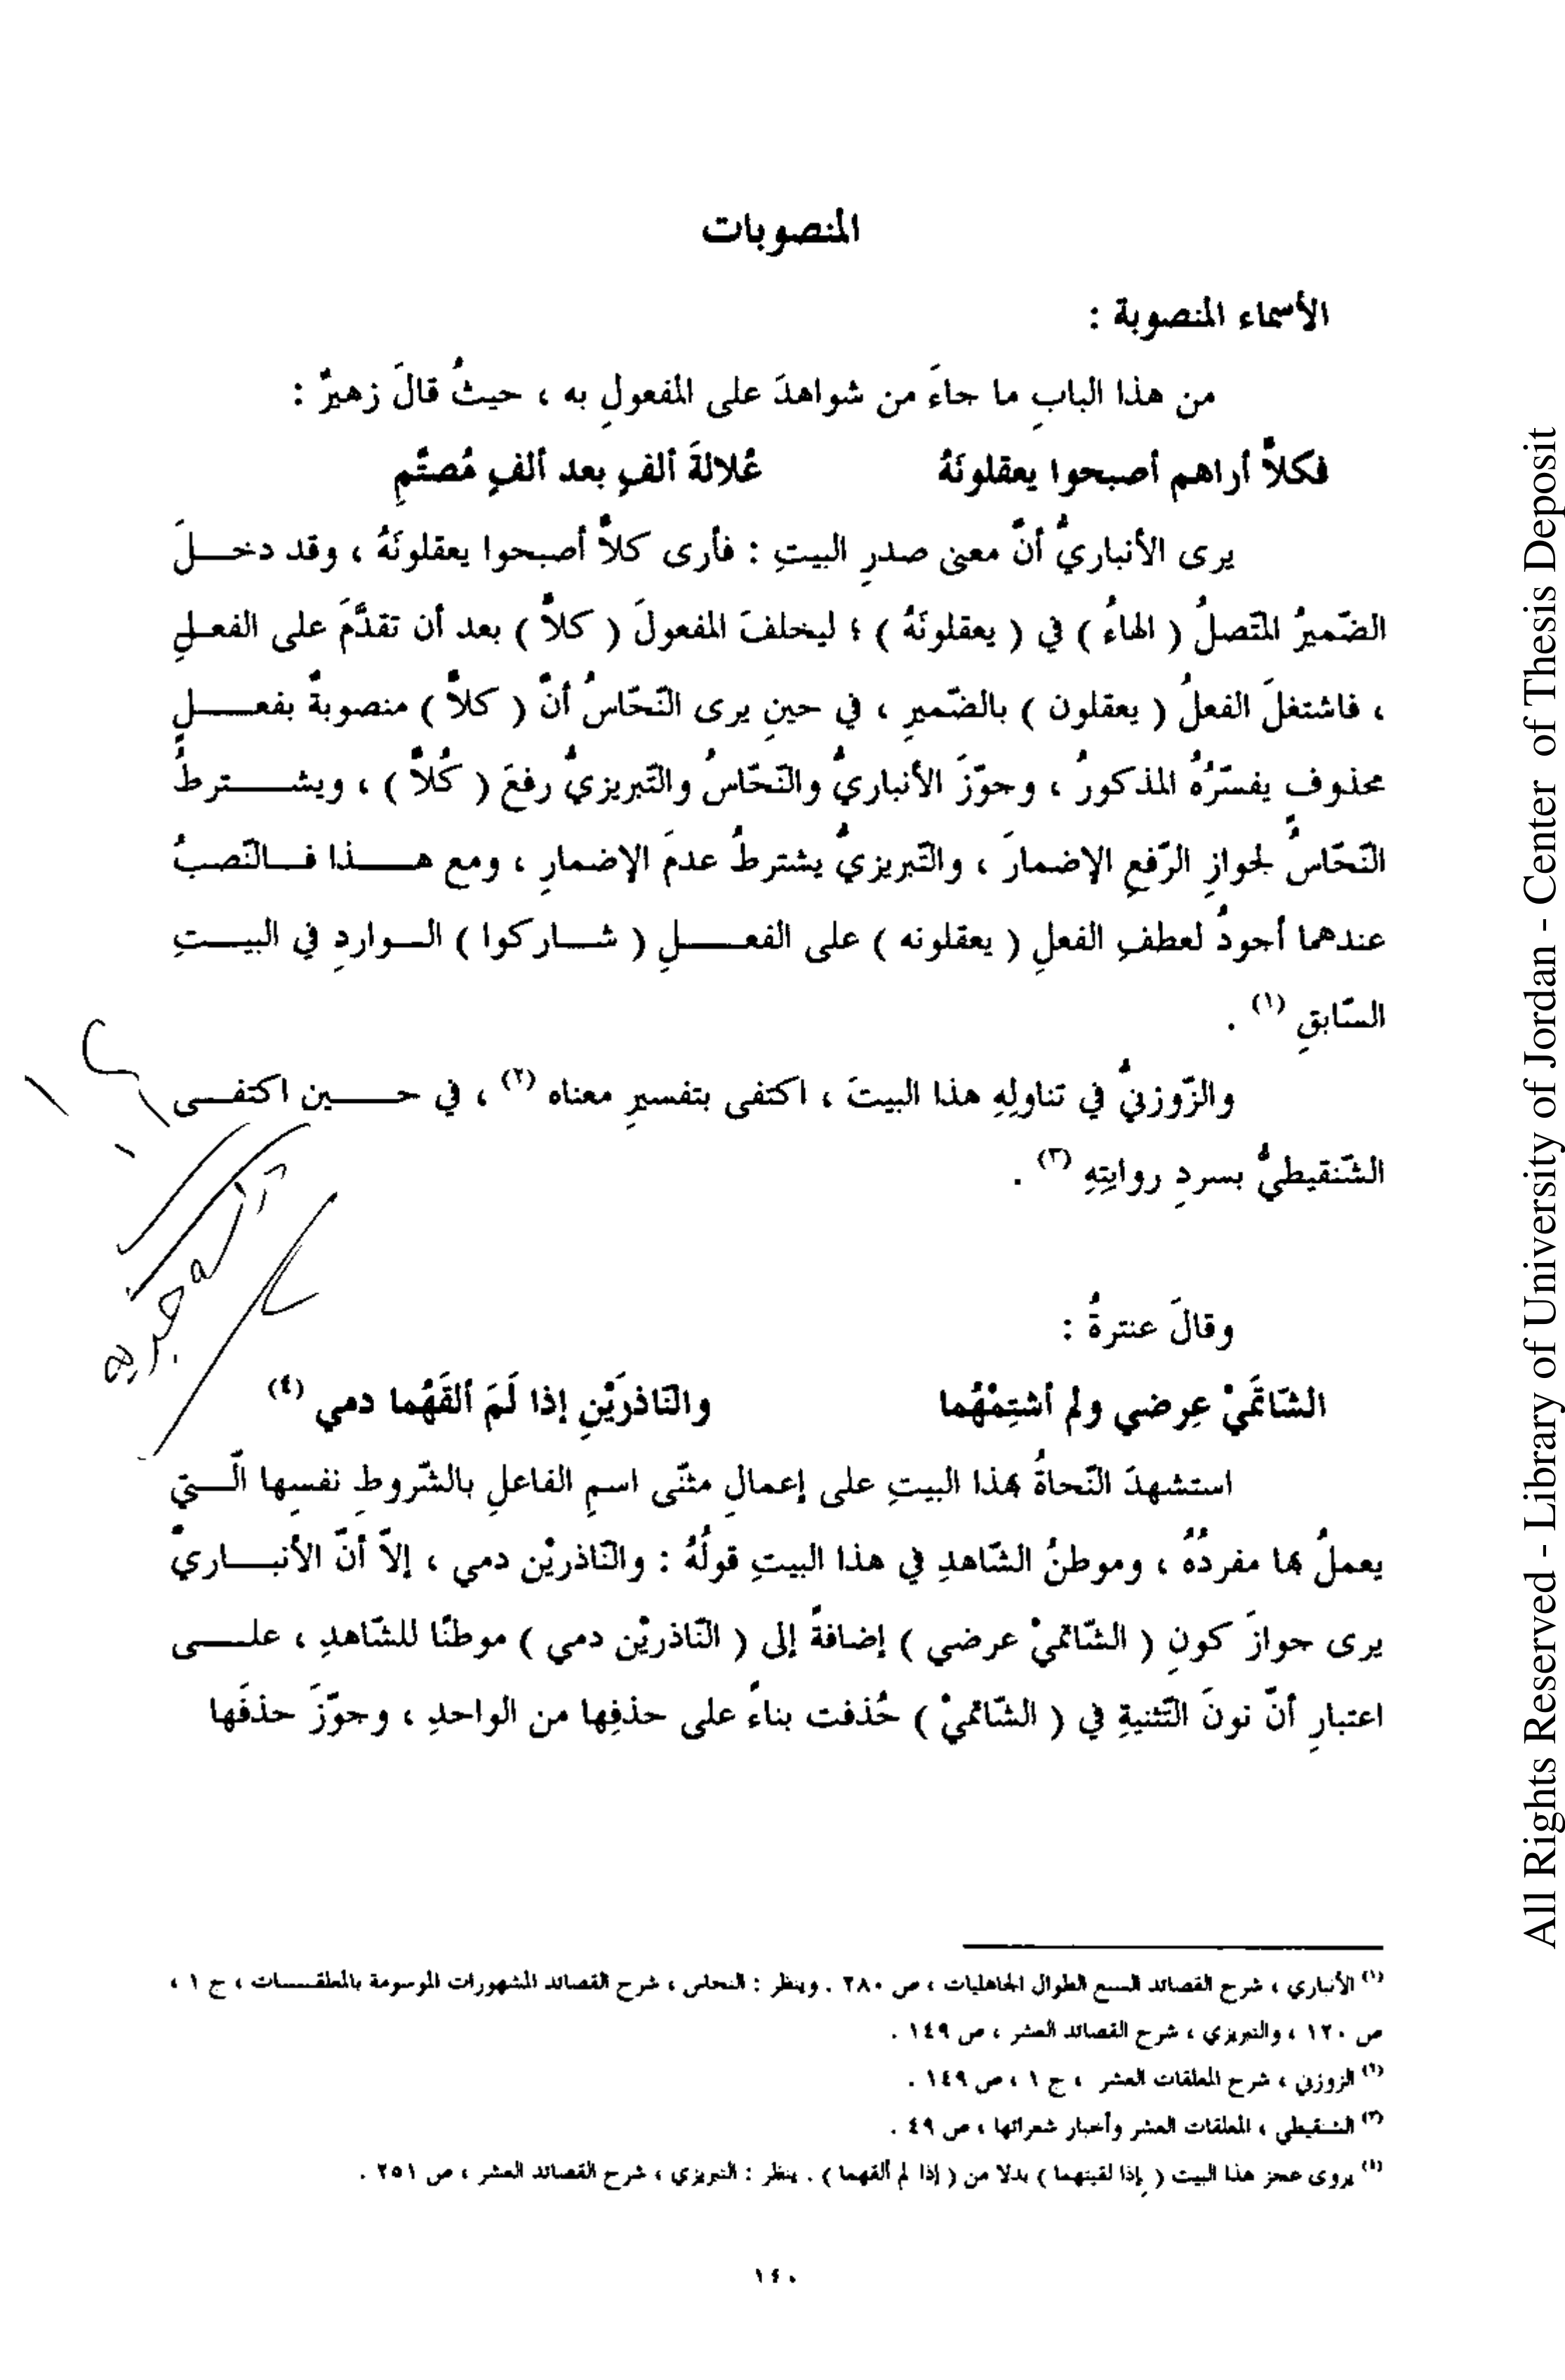 المنصوبات
الأسماء المنصوبة :
من هذا البابِ ما جاءَ من شواهدَ على المفعولِ به ، حيثُ قالَ زهيرٌ :
فكلاًّ أراهم أصبحوا يعقلونَهُ عُلالةَ ألفٍ بعد ألفٍ مُصتَّمِ
يرى الأنباريُّ أنَّ معنى صدرِ البيتِ : فأرى كلاًّ أصبحوا يعقلونَهُ ، وقد دخـــلَ
الضّميرُ المتّصلُ ( الهاءُ ) في ( يعقلونَهُ ) ؛ ليخلفَ المفعولَ ( كلاًّ ) بعد أن تقدَّمَ على الفعـلِ
، فاشتغلَ الفعلُ ( يعقلون ) بالضّميرِ ، في حينِ يرى النّحّاسُ أنَّ ( كلاًّ ) منصوبةٌ بفعـــلٍ
محذوفٍ يفسّرُهُ المذكورُ ، وجوّزَ الأنباريُّ والنّحّاسُ والتّبريزيُّ رفعَ ( كُلاًّ ) ، ويشـــترطُ
النّحّاسُ لجوازِ الرّفعِ الإضمارَ ، والتّبريزيُّ يشترطُ عدمَ الإضمارِ ، ومع هـــذا فـالنّصبُ
عندهما أجودُ لعطفِ الفعلِ ( يعقلونه ) على الفعـــلِ ( شـاركوا ) الـواردِ في البيـتِ
السّابقِ (١) .
والزّوزنيُّ في تناولِهِ هذا البيتَ ، اكتفى بتفسيرِ معناه (٢) ، في حـــين اكتفـى
الشّنقيطيُّ بسردِ روايتِهِ (٣) .
وقالَ عنترةُ :
الشّاتِمَيْ عِرضي ولم أشتِمْهُما والنّاذرَيْنِ إذا لَمَ ألقَهُما دمي (٤)
استشهدَ النّحاةُ بهذا البيتِ على إعمالِ مثنّى اسمِ الفاعلِ بالشّروطِ نفسِها الّـتي
يعملُ بها مفردُهُ ، وموطنُ الشّاهدِ في هذا البيتِ قولُهُ : والنّاذريْن دمي ، إلاّ أنّ الأنبـاريّ
يرى جوازَ كونِ ( الشّاتميْ عرضي ) إضافةً إلى ( النّاذريْن دمي ) موطنًا للشّاهدِ ، علـى
اعتبارِ أنّ نونَ التّثنيةِ في ( الشّاتميْ ) حُذفت بناءً على حذفِها من الواحدِ ، وجوّزَ حذفَها
(١) الأنباري ، شرح القصائد السبع الطوال الجاهليات ، ص ٢٨٠ . وينظر : النحاس ، شرح القصائد المشهورات الموسومة بالمعلقـــات ، ج ١ ،
ص ١٢٠ ، والتبريزي ، شرح القصائد العشر ، ص ١٤٩ .
(٢) الزوزني ، شرح المعلقات العشر ، ج ١ ، ص ١٤٩ .
(٣) الشنقيطي ، المعلقات العشر وأخبار شعرائها ، ص ٤٩ .
(٤) يروى عجز هذا البيت ( إذا لقيتهما ) بدلا من ( إذا لم ألقهما ) . ينظر : التبريزي ، شرح القصائد العشر ، ص ٢٥١ .
١٤٠
All Rights Reserved - Library of University of Jordan - Center of Thesis Deposit